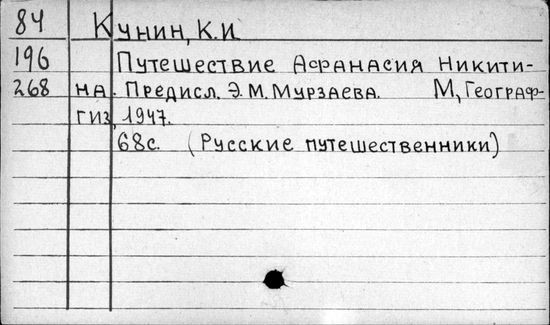 84 Кунин, К.И
196 Путешествие Афанасия Никити-
268 на. Предисл. Э.М. Мурзаева. М, Географ-
гиз, 1947.
68с. (Русские путешественники)